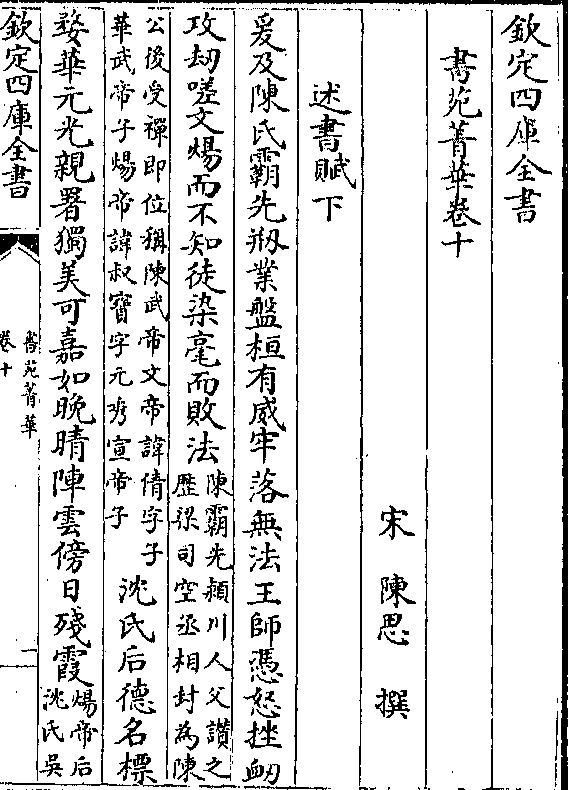 欽定四庫全書
書苑菁華卷十
宋 陳思 撰
述書賦下
爰及陳氏霸先剏業盤桓有威牢落無法王師憑怒挫衂
攻刼嗟文煬而不知徒染毫而敗法
陳霸先潁川人父讚之
歴梁司空丞相封為陳
公後受禪即位稱陳武帝文帝諱倩字子
華武帝子煬帝諱叔寶字元秀宣帝子
沈氏后德名標
婺華元光親署獨美可嘉如晚晴陣雲傍日殘霞
煬帝后
沈氏吳
欽定四庫全書
書苑菁華
卷十
一